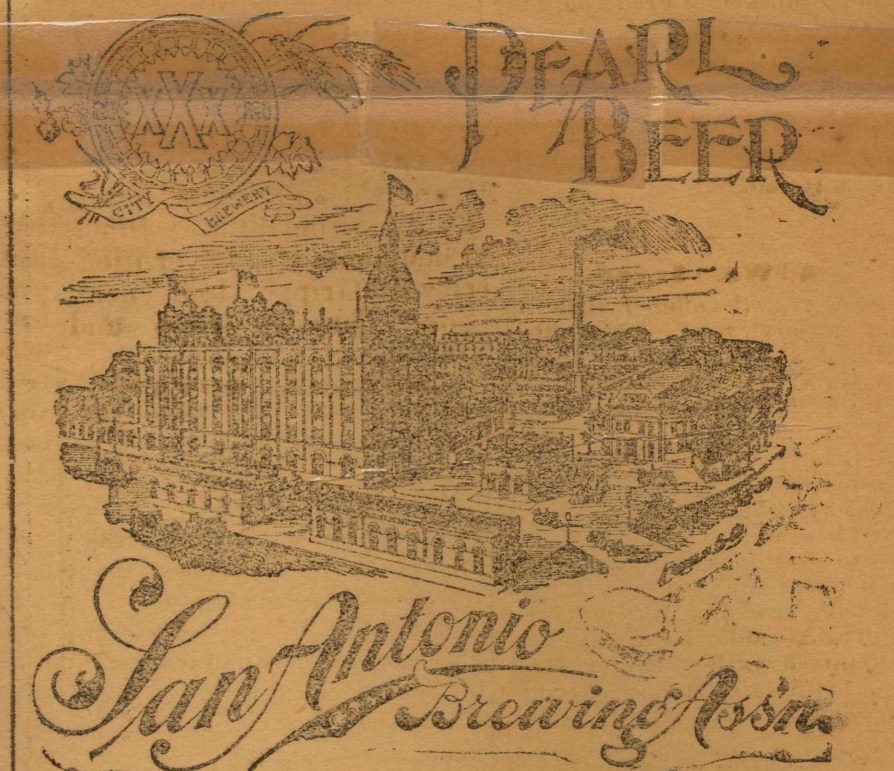 XXX
CITY BREWERY
PEARL
BEER
San Antonio
Brewing Ass'n.